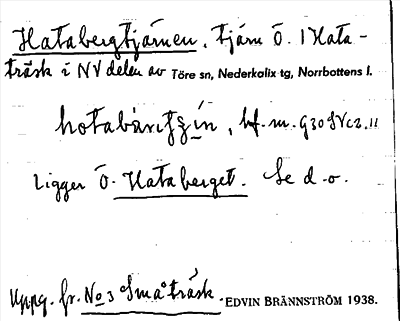 Hatabergtjärnen, tjärn Ö. I Hata-
träsk i NV delen av Töre sn, Nederkalix tg, Norrbottens l.
bf. m. G30SVc2.11
Ligger Ö. Hataberget. Se d.o.
Uppg. fr. No 3 Småträsk. EDVIN BRÄNNSTRÖM 1938.